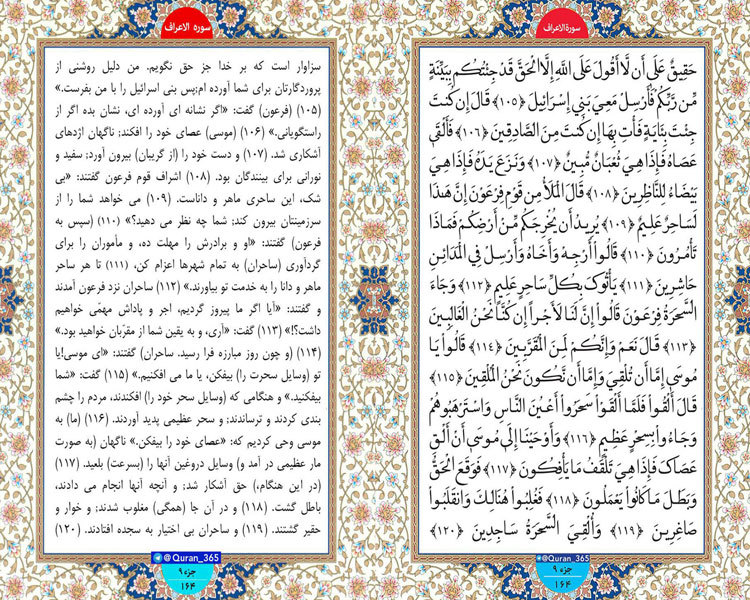 سورة الاعراف
حَقِيقٌ عَلَى أَن لَّا أَقُولَ عَلَى اللَّهِ إِلَّا الْحَقَّ قَدْ جِئْتُكُم بِبَيِّنَةٍ
مِّن رَّبِّكُمْ فَأَرْسِلْ مَعِيَ بَنِي إِسْرَائِيلَ ﴿۱۰۵﴾ قَالَ إِن كُنتَ
جِئْتَ بِآيَةٍ فَأْتِ بِهَا إِن كُنتَ مِنَ الصَّادِقِينَ ﴿۱۰۶﴾ فَأَلْقَى
عَصَاهُ فَإِذَا هِيَ ثُعْبَانٌ مُّبِينٌ ﴿۱۰۷﴾ وَنَزَعَ يَدَهُ فَإِذَا هِيَ
بَيْضَاءُ لِلنَّاظِرِينَ ﴿۱۰۸﴾ قَالَ الْمَلَأُ مِن قَوْمِ فِرْعَوْنَ إِنَّ هَذَا
لَسَاحِرٌ عَلِيمٌ ﴿۱۰۹﴾ يُرِيدُ أَن يُخْرِجَكُم مِّنْ أَرْضِكُمْ فَمَاذَا
تَأْمُرُونَ ﴿۱۱۰﴾ قَالُوا أَرْجِهْ وَأَخَاهُ وَأَرْسِلْ فِي الْمَدَائِنِ
حَاشِرِينَ ﴿۱۱۱﴾ يَأْتُوكَ بِكُلِّ سَاحِرٍ عَلِيمٍ ﴿۱۱۲﴾ وَجَاءَ
السَّحَرَةُ فِرْعَوْنَ قَالُوا إِنَّ لَنَا لَأَجْرًا إِن كُنَّا نَحْنُ الْغَالِبِينَ
﴿۱۱۳﴾ قَالَ نَعَمْ وَإِنَّكُمْ لَمِنَ الْمُقَرَّبِينَ ﴿۱۱۴﴾ قَالُوا يَا
مُوسَى إِمَّا أَن تُلْقِيَ وَإِمَّا أَن نَّكُونَ نَحْنُ الْمُلْقِينَ ﴿۱۱۵﴾
قَالَ أَلْقُوا فَلَمَّا أَلْقَوْا سَحَرُوا أَعْيُنَ النَّاسِ وَاسْتَرْهَبُوهُمْ
وَجَاءُوا بِسِحْرٍ عَظِيمٍ ﴿۱۱۶﴾ وَأَوْحَيْنَا إِلَى مُوسَى أَنْ أَلْقِ
عَصَاكَ فَإِذَا هِيَ تَلْقَفُ مَا يَأْفِكُونَ ﴿۱۱۷﴾ فَوَقَعَ الْحَقُّ
وَبَطَلَ مَا كَانُوا يَعْمَلُونَ ﴿۱۱۸﴾ فَغُلِبُوا هُنَالِكَ وَانقَلَبُوا
صَاغِرِينَ ﴿۱۱۹﴾ وَأُلْقِيَ السَّحَرَةُ سَاجِدِينَ ﴿۱۲۰﴾
@Quran_365
جزء ۹
۱۶۴
سوره الاعراف
سزاوار است که بر خدا جز حق نگویم. من دلیل روشنی از
پروردگارتان برای شما آورده ام؛پس بنی اسرائیل را با من بفرست.»
(۱۰۵) (فرعون) گفت: «اگر نشانه ای آورده ای، نشان بده اگر از
راستگویانی.» (۱۰۶) (موسی) عصای خود را افکند؛ ناگهان اژدهای
آشکاری شد. (۱۰۷) و دست خود را (از گریبان) بیرون آورد؛ سفید و
نورانی برای بینندگان بود. (۱۰۸) اشراف قوم فرعون گفتند: «بی
شک، این ساحری ماهر و داناست. (۱۰۹) می خواهد شما را از
سرزمینتان بیرون کند؛ شما چه نظر می دهید؟» (۱۱۰) (سپس به
فرعون) گفتند: «او و برادرش را مهلت ده، و مأموران را برای
گردآوری (ساحران) به تمام شهرها اعزام کن، (۱۱۱) تا هر ساحر
ماهر و دانا را به خدمت تو بیاورند.» (۱۱۲) ساحران نزد فرعون آمدند
و گفتند: «آیا اگر ما پیروز گردیم، اجر و پاداش مهمّی خواهیم
داشت؟!» (۱۱۳) گفت: «آری، و به یقین شما از مقرّبان خواهید بود.»
(۱۱۴) (و چون روز مبارزه فرا رسید. ساحران) گفتند: «ای موسی!یا
تو (وسایل سحرت را) بیفکن، یا ما می افکنیم.» (۱۱۵) گفت: «شما
بیفکنید.» و هنگامی که (وسایل سحر خود را) افکندند، مردم را چشم
بندی کردند و ترساندند؛ و سحر عظیمی پدید آوردند. (۱۱۶) (ما) به
موسی وحی کردیم که: «عصای خود را بیفکن.» ناگهان (به صورت
مار عظیمی در آمد و) وسایل دروغین آنها را (بسرعت) بلعید. (۱۱۷)
(در این هنگام،) حق آشکار شد؛ و آنچه آنها انجام می دادند،
باطل گشت. (۱۱۸) و در آن جا (همگی) مغلوب شدند؛ و خوار و
حقیر گشتند. (۱۱۹) و ساحران بی اختیار به سجده افتادند. (۱۲۰)
@Quran_365
جزء ۹
۱۶۴